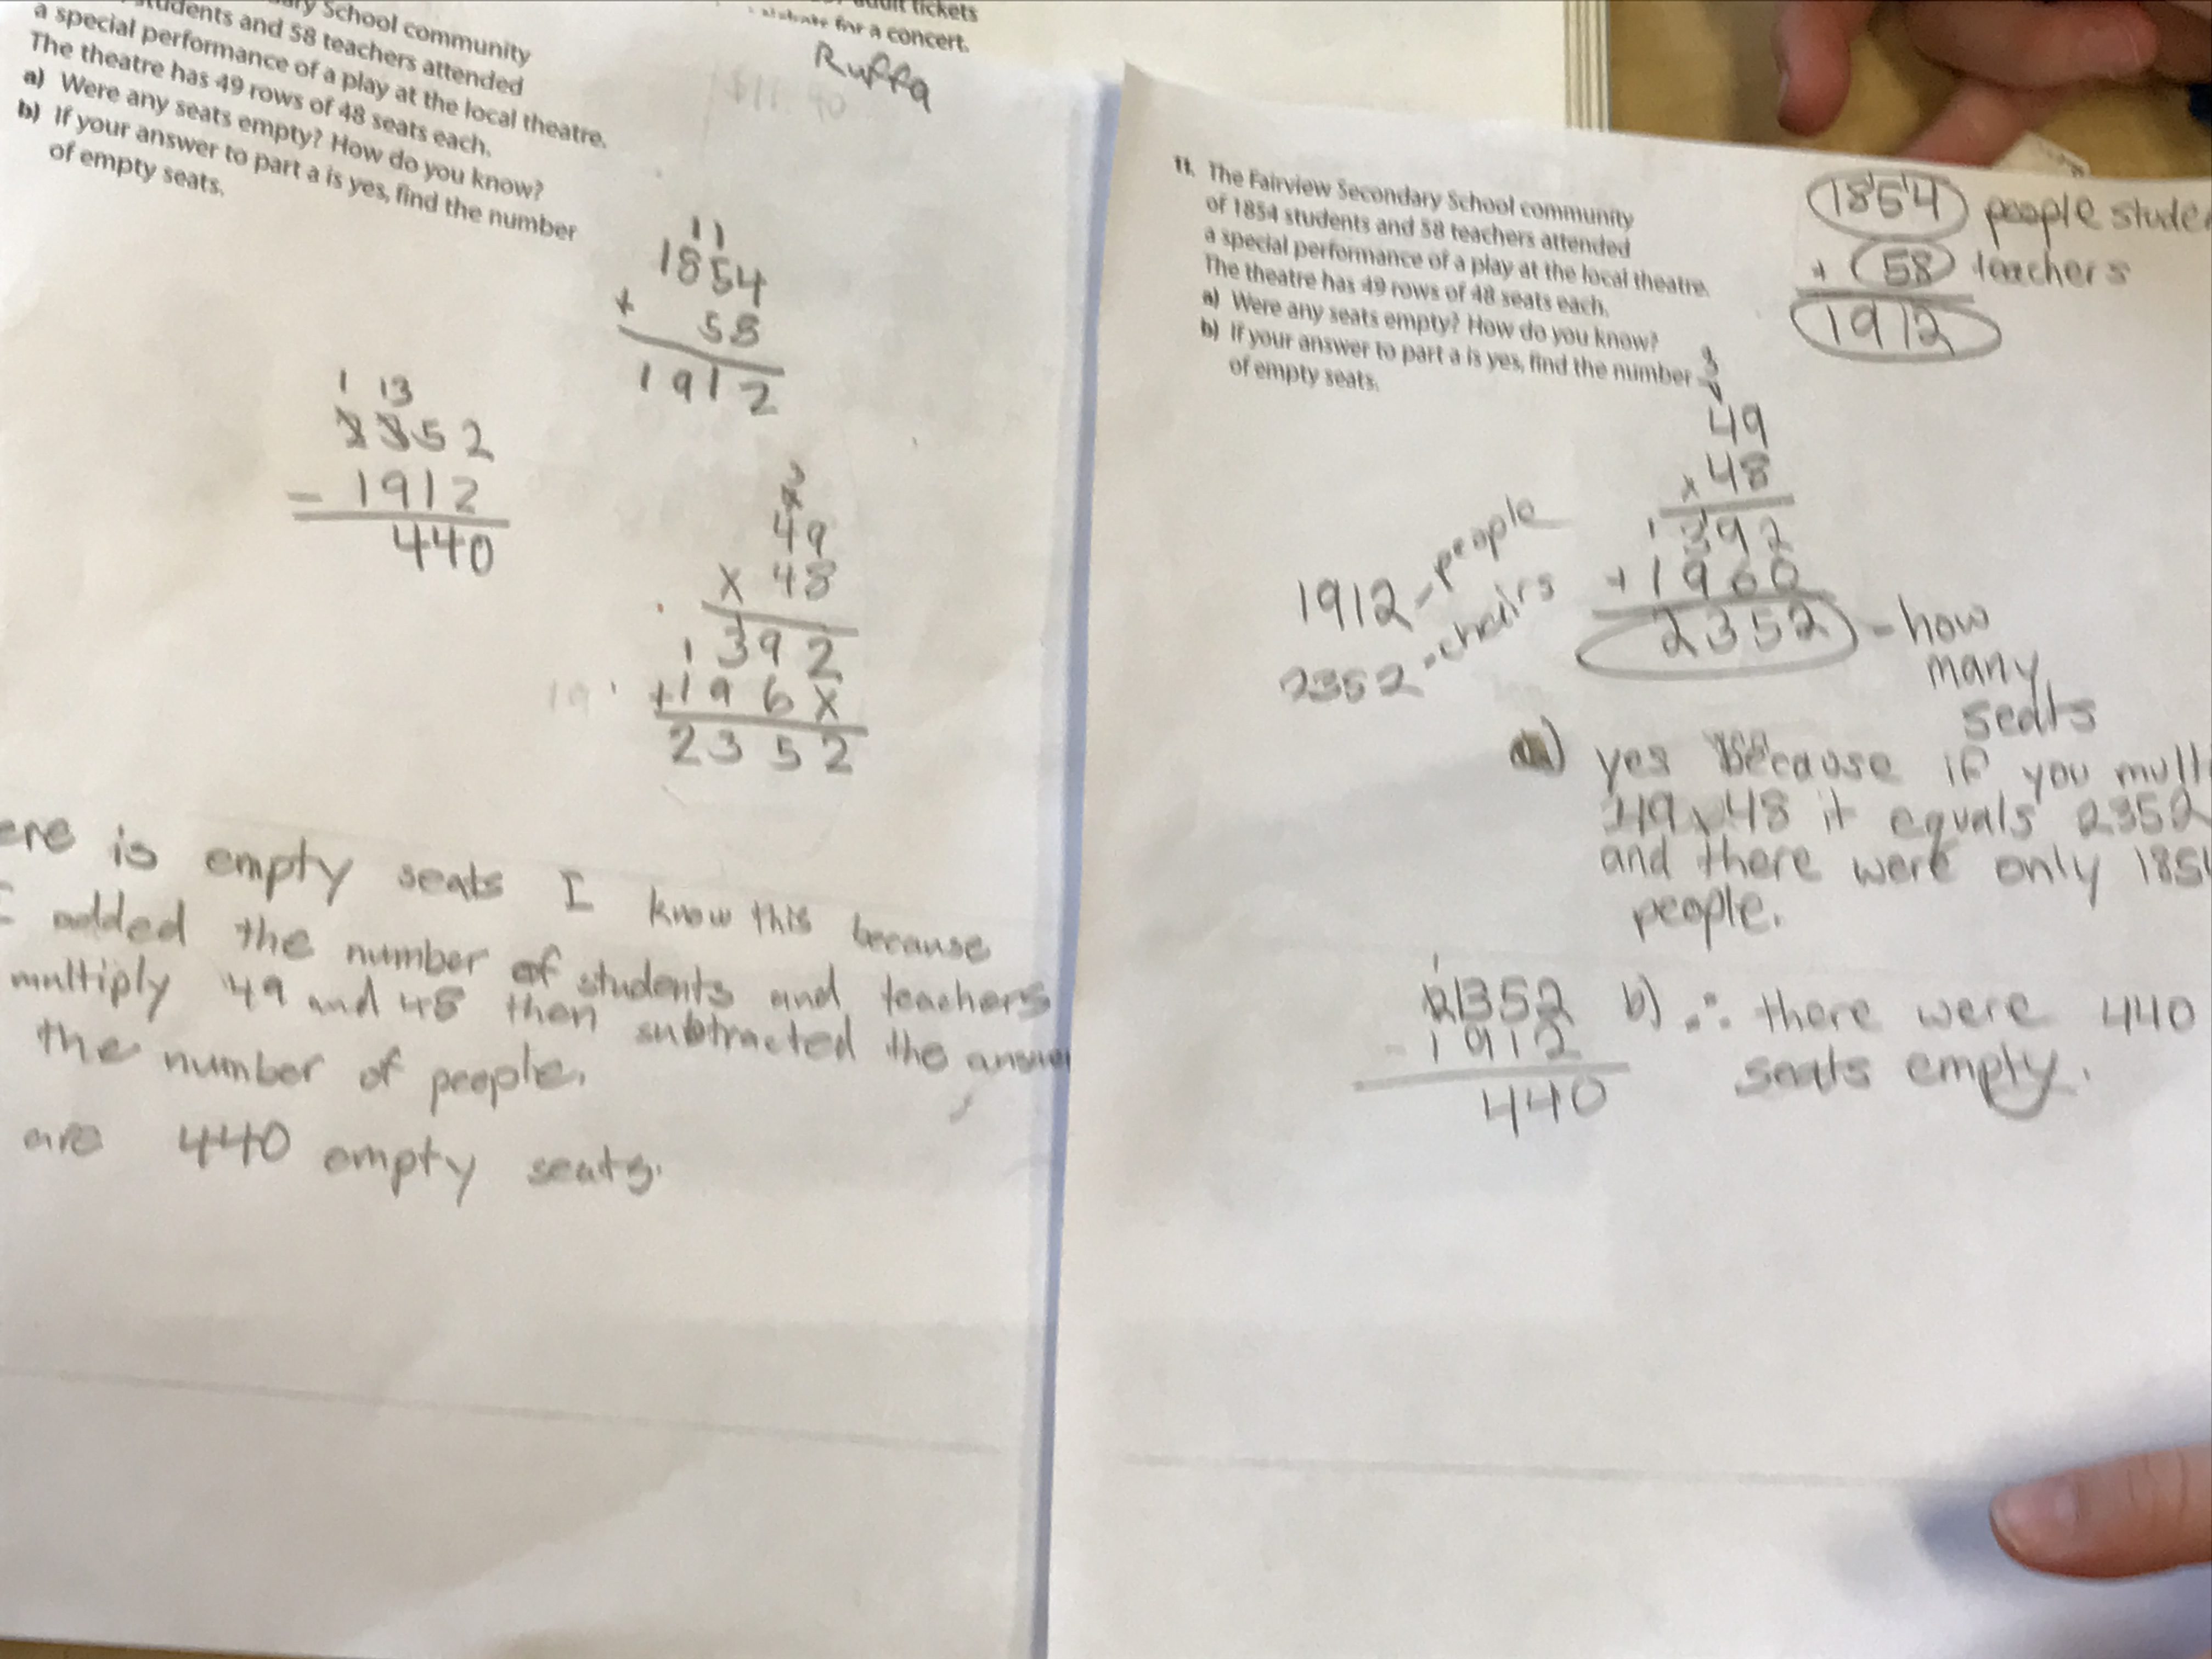 School community
students and 58 teachers attended
a special performance of a play at the local theatre.
The theatre has 49 rows of 48 seats each.
a) Were any seats empty? How do you know?
b) If your answer to part a is yes, find the number
of empty seats.
tickets
for a concert.
Ruffa
11
1854
+ 58
1912
1 13
2352
- 1912
440
3
49
x 48
1 392
+196x
2352
ere is empty seats I know this because
I added the number of students and teachers
multiply 49 and 48 then subtracted the answer
the number of people.
are 440 empty seats.
11. The Fairview Secondary School community
of 1854 students and 58 teachers attended
a special performance of a play at the local theatre.
The theatre has 49 rows of 48 seats each.
a) Were any seats empty? How do you know?
b) If your answer to part a is yes, find the number
of empty seats.
1854 people stude
+ 58 teachers
1912
3
49
x 48
1 392
+1960
2352 - how
many
seats
1912 - people
2352 - chairs
a) yes because if you mult
49 x 48 it equals 2352
and there were only 185
people.
1
21352
- 1912
440
b) ∴ there were 440
seats empty.